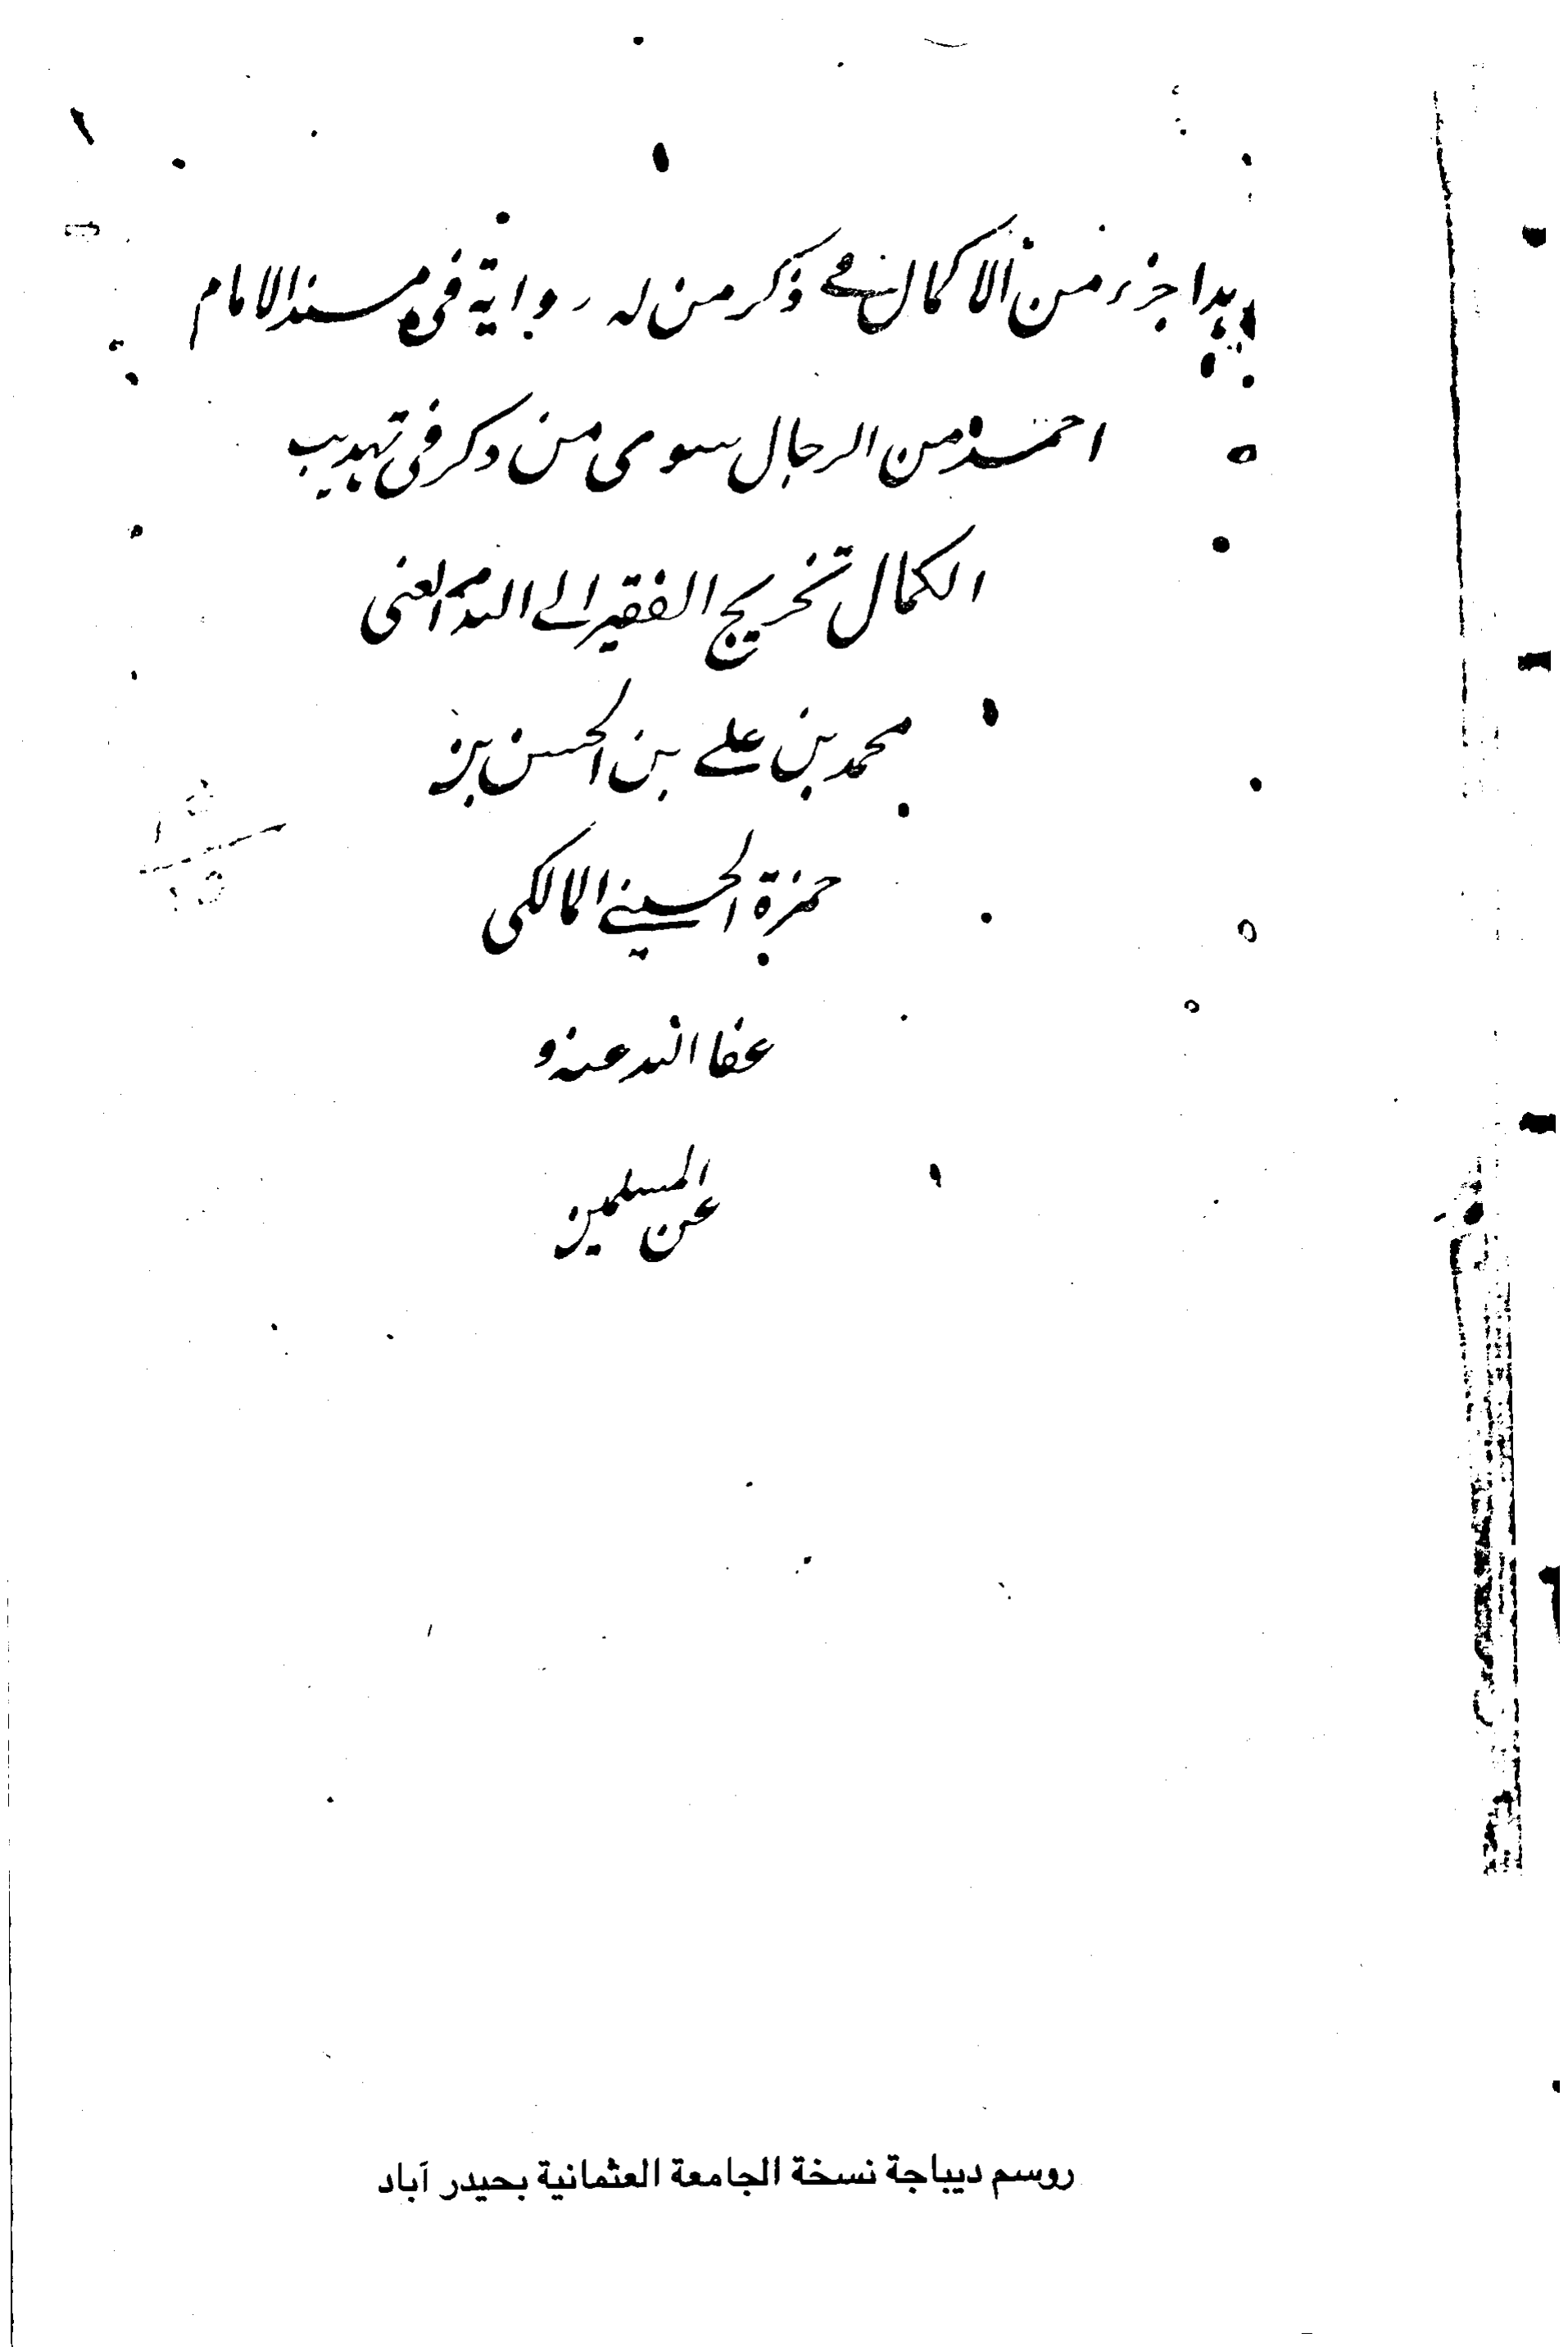 ١
هذا جزء من الاكمال في ذكر من له رواية في مسند الامام
احمد من الرجال سوى من ذكر في تهذيب
الكمال تخريج الفقير الى الله الغنى
محمد بن على بن الحسن بن
حمزة الحسينى المالكى
عفا الله عنه و
عن المسلمين
روسم ديباجة نسخة الجامعة العثمانية بحيدر آباد